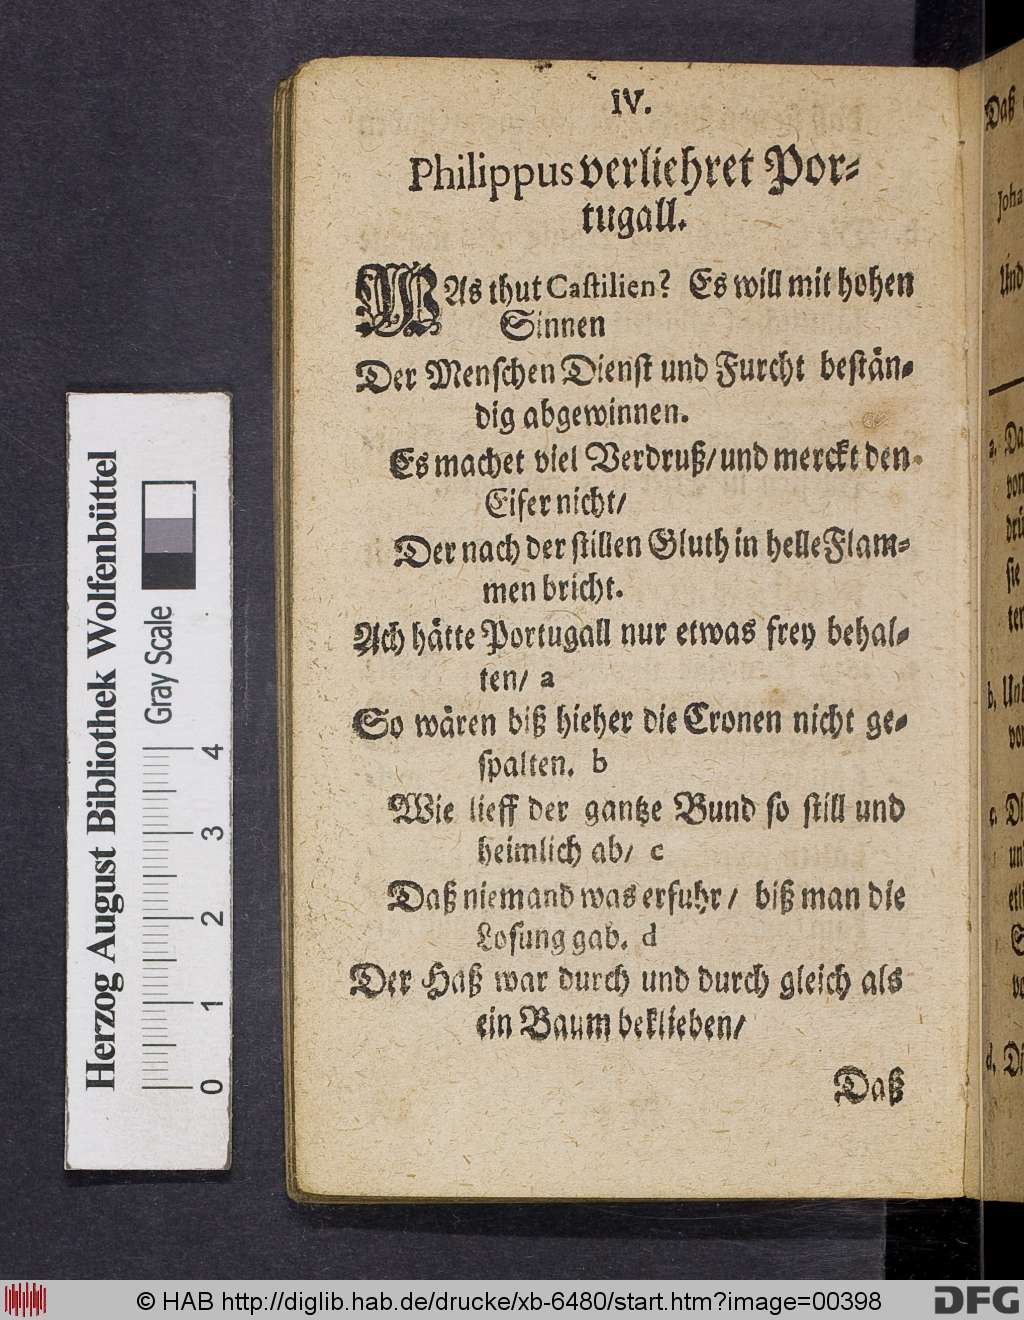 IV.
Philippus verliehret Por-
tugall.
WAs thut Castilien? Es will mit hohen
Sinnen
Der Menschen Dienst und Furcht bestän-
dig abgewinnen.
Es machet viel Verdruß/und merckt den
Eifer nicht/
Der nach der stillen Gluth in helle Flam-
men bricht.
Ach hätte Portugall nur etwas frey behal-
ten/ a
So wären biß hieher die Cronen nicht ge-
spalten. b
Wie lieff der gantze Bund so still und
heimlich ab/ c
Daß niemand was erfuhr/ biß man die
Losung gab. d
Der Haß war durch und durch gleich als
ein Baum beklieben/
Daß
Daß
Joha
Und
a. Da
vor
drü
sie
ter
b. Unt
vo
c. Di
un
etl
S
vo
d. Di
Herzog August Bibliothek Wolfenbüttel
Gray Scale
0 1 2 3 4
© HAB http://diglib.hab.de/drucke/xb-6480/start.htm?image=00398
DFG